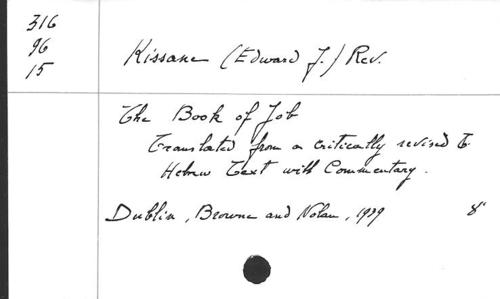 316
96
15
Kissane (Edward J.) Rev.
The Book of Job
Translated from a critically revised
Hebrew Text with Commentary.
Dublin, Browne and Nolan, 1939 8°